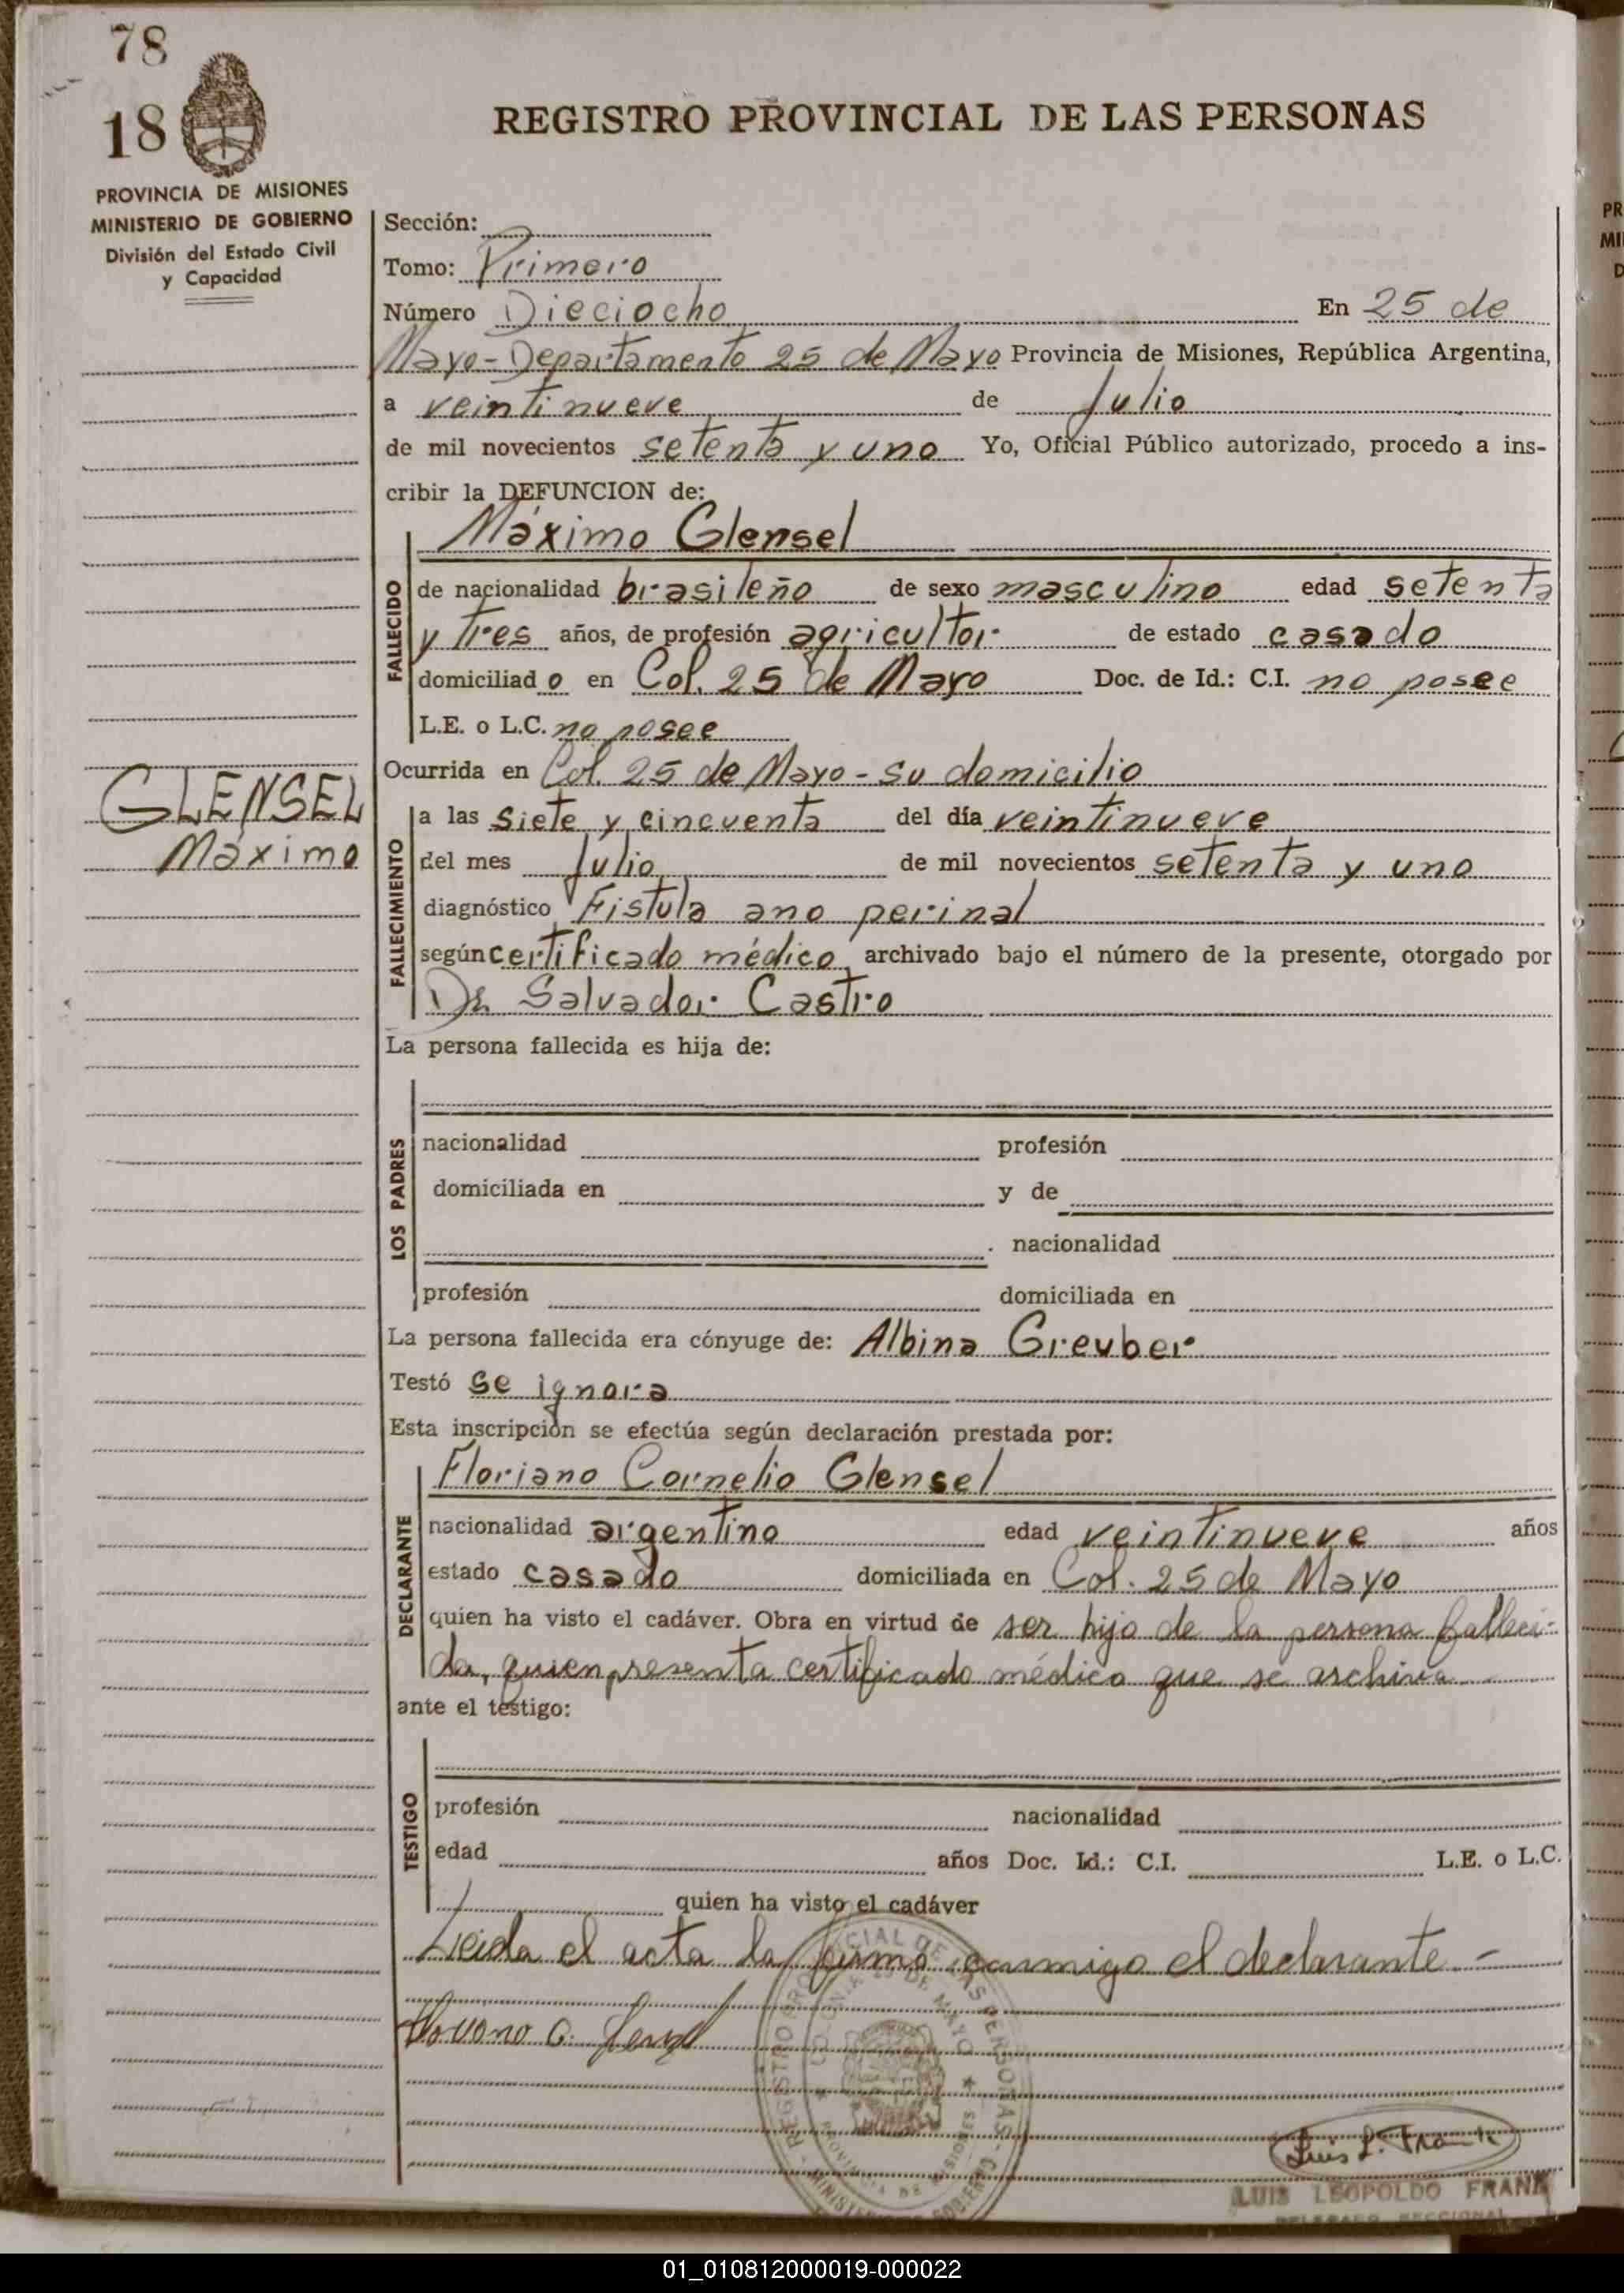 78
18
REGISTRO PROVINCIAL DE LAS PERSONAS
PROVINCIA DE MISIONES
MINISTERIO DE GOBIERNO
División del Estado Civil
y Capacidad
Sección:
Tomo: Primero
Número Dieciocho En 25 de
Mayo - Departamento 25 de Mayo Provincia de Misiones, República Argentina,
a veintinueve de Julio
de mil novecientos setenta y uno Yo, Oficial Público autorizado, procedo a ins-
cribir la DEFUNCION de:
Máximo Glensel
FALLECIDO
de nacionalidad brasileño de sexo masculino edad setenta
y tres años, de profesión agricultor de estado casado
domiciliado en Col. 25 de Mayo Doc. de Id.: C.I. no posee
L.E. o L.C. no posee
Ocurrida en Col. 25 de Mayo - su domicilio
GLENSEL
Máximo
FALLECIMIENTO
a las siete y cincuenta del día veintinueve
del mes Julio de mil novecientos setenta y uno
diagnóstico Fistula ano perinal
según certificado médico archivado bajo el número de la presente, otorgado por
Dr. Salvador Castro
La persona fallecida es hija de:
LOS PADRES
nacionalidad profesión
domiciliada en y de
. nacionalidad
profesión domiciliada en
La persona fallecida era cónyuge de: Albina Greuber
Testó se ignora
Esta inscripción se efectúa según declaración prestada por:
Floriano Cornelio Glensel
DECLARANTE
nacionalidad argentino edad veintinueve años
estado casado domiciliada en Col. 25 de Mayo
quien ha visto el cadáver. Obra en virtud de ser hijo de la persona falleci-
da, quien presenta certificado médico que se archiva
ante el testigo:
TESTIGO
profesión nacionalidad
edad años Doc. Id.: C.I. L.E. o L.C.
quien ha visto el cadáver
Leida el acta la firma conmigo el declarante. -
REGISTRO PROVINCIAL DE LAS PERSONAS
COLONIA 25 DE MAYO
PROVINCIA DE MISIONES
Luis L. Frank
LUIS LEOPOLDO FRANK
DELEGADO SECCIONAL
01_010812000019-000022